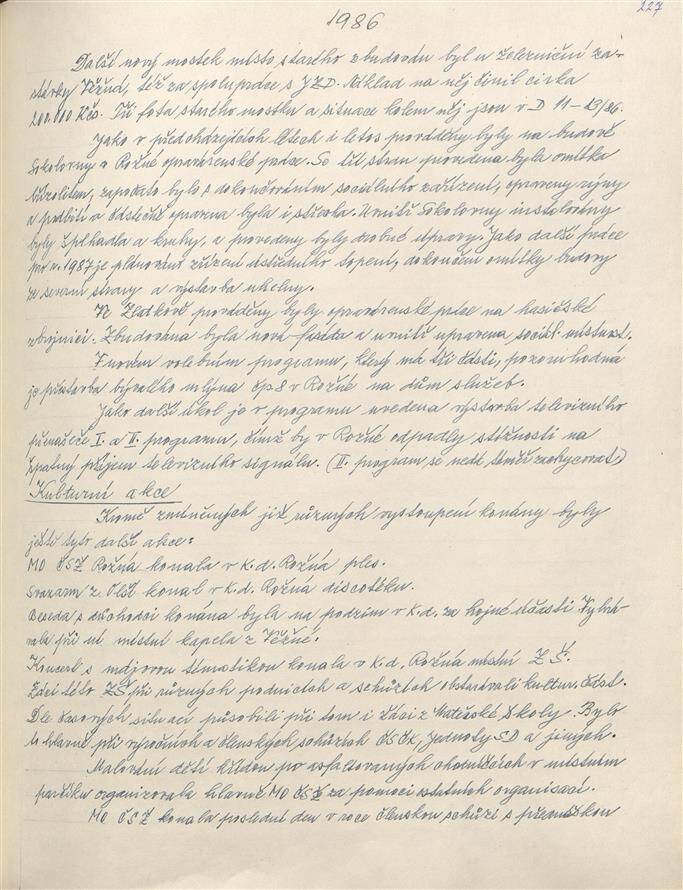 227
1986
Další nový mostek místo starého zbudován byl u železniční za-
stávky Věžná, též za spolupráce s JZD. Náklad na něj činil cirka
200.000 Kčs. Tři fota starého mostku a situace kolem něj jsou v D 11-13/86.
Jako v předcházejících letech i letos prováděny byly na budově
Sokolovny v Rožné opravárenské práce. Se tří stran provedena byla omítka
břizolitem, započato bylo s dokončováním sociálního zařízení, opraveny rýny
a podbití a částečně opravena byla i střecha. Uvnitř Sokolovny instalovány
byly šplhadla a kruhy, a provedeny byly drobné úpravy. Jako další práce
pro r. 1987 je plánováno zřízení ústředního topení, dokončení omítky budovy
ze severní strany a výstavba uhelny.
Ve Zlatkově prováděny byly opravárenské práce na hasičské
zbrojnici. Zbudována byla nová fasáda a uvnitř upravena sociál. místnost.
V novém volebním programu, který má tři části, pozoruhodná
je přístavba bývalého mlýna čp 8 v Rožné na dům služeb.
Jako další úkol je v programu uvedena výstavba televizního
převaděče I. a II. programu, čímž by v Rožné odpadly stížnosti na
špatný příjem televizního signálu. (II. program se nedá téměř zachycovat.)
Kulturní akce
Kromě zmíněných již různých vystoupení konány byly
ještě tyto další akce:
MO ČSŽ Rožná konala v k.d. Rožná ples.
Svazarm z Olší konal v k.d. Rožná discotéku.
Beseda s důchodci konána byla na podzim v k.d. za hojné účasti. Vyhrá-
vala při ní místní kapela z Věžné.
Koncert s májovou tématikou konala v k.d. Rožná místní Z Š.
Žáci této ZŠ při různých podnicích a schůzích obstarávali kultur. část.
Dle časových situací působili při tom i žáci z Mateřské školy. Bylo
to hlavně při výročních a členských schůzích ČSČK, Jednoty SD a jiných.
Malování dětí křídou po asfaltovaných chodníčcích v místním
parčíku organizovala hlavně MO ČSŽ za pomoci ostatních organisací.
MO ČSŽ konala poslední den v roce členskou schůzi s přednáškou